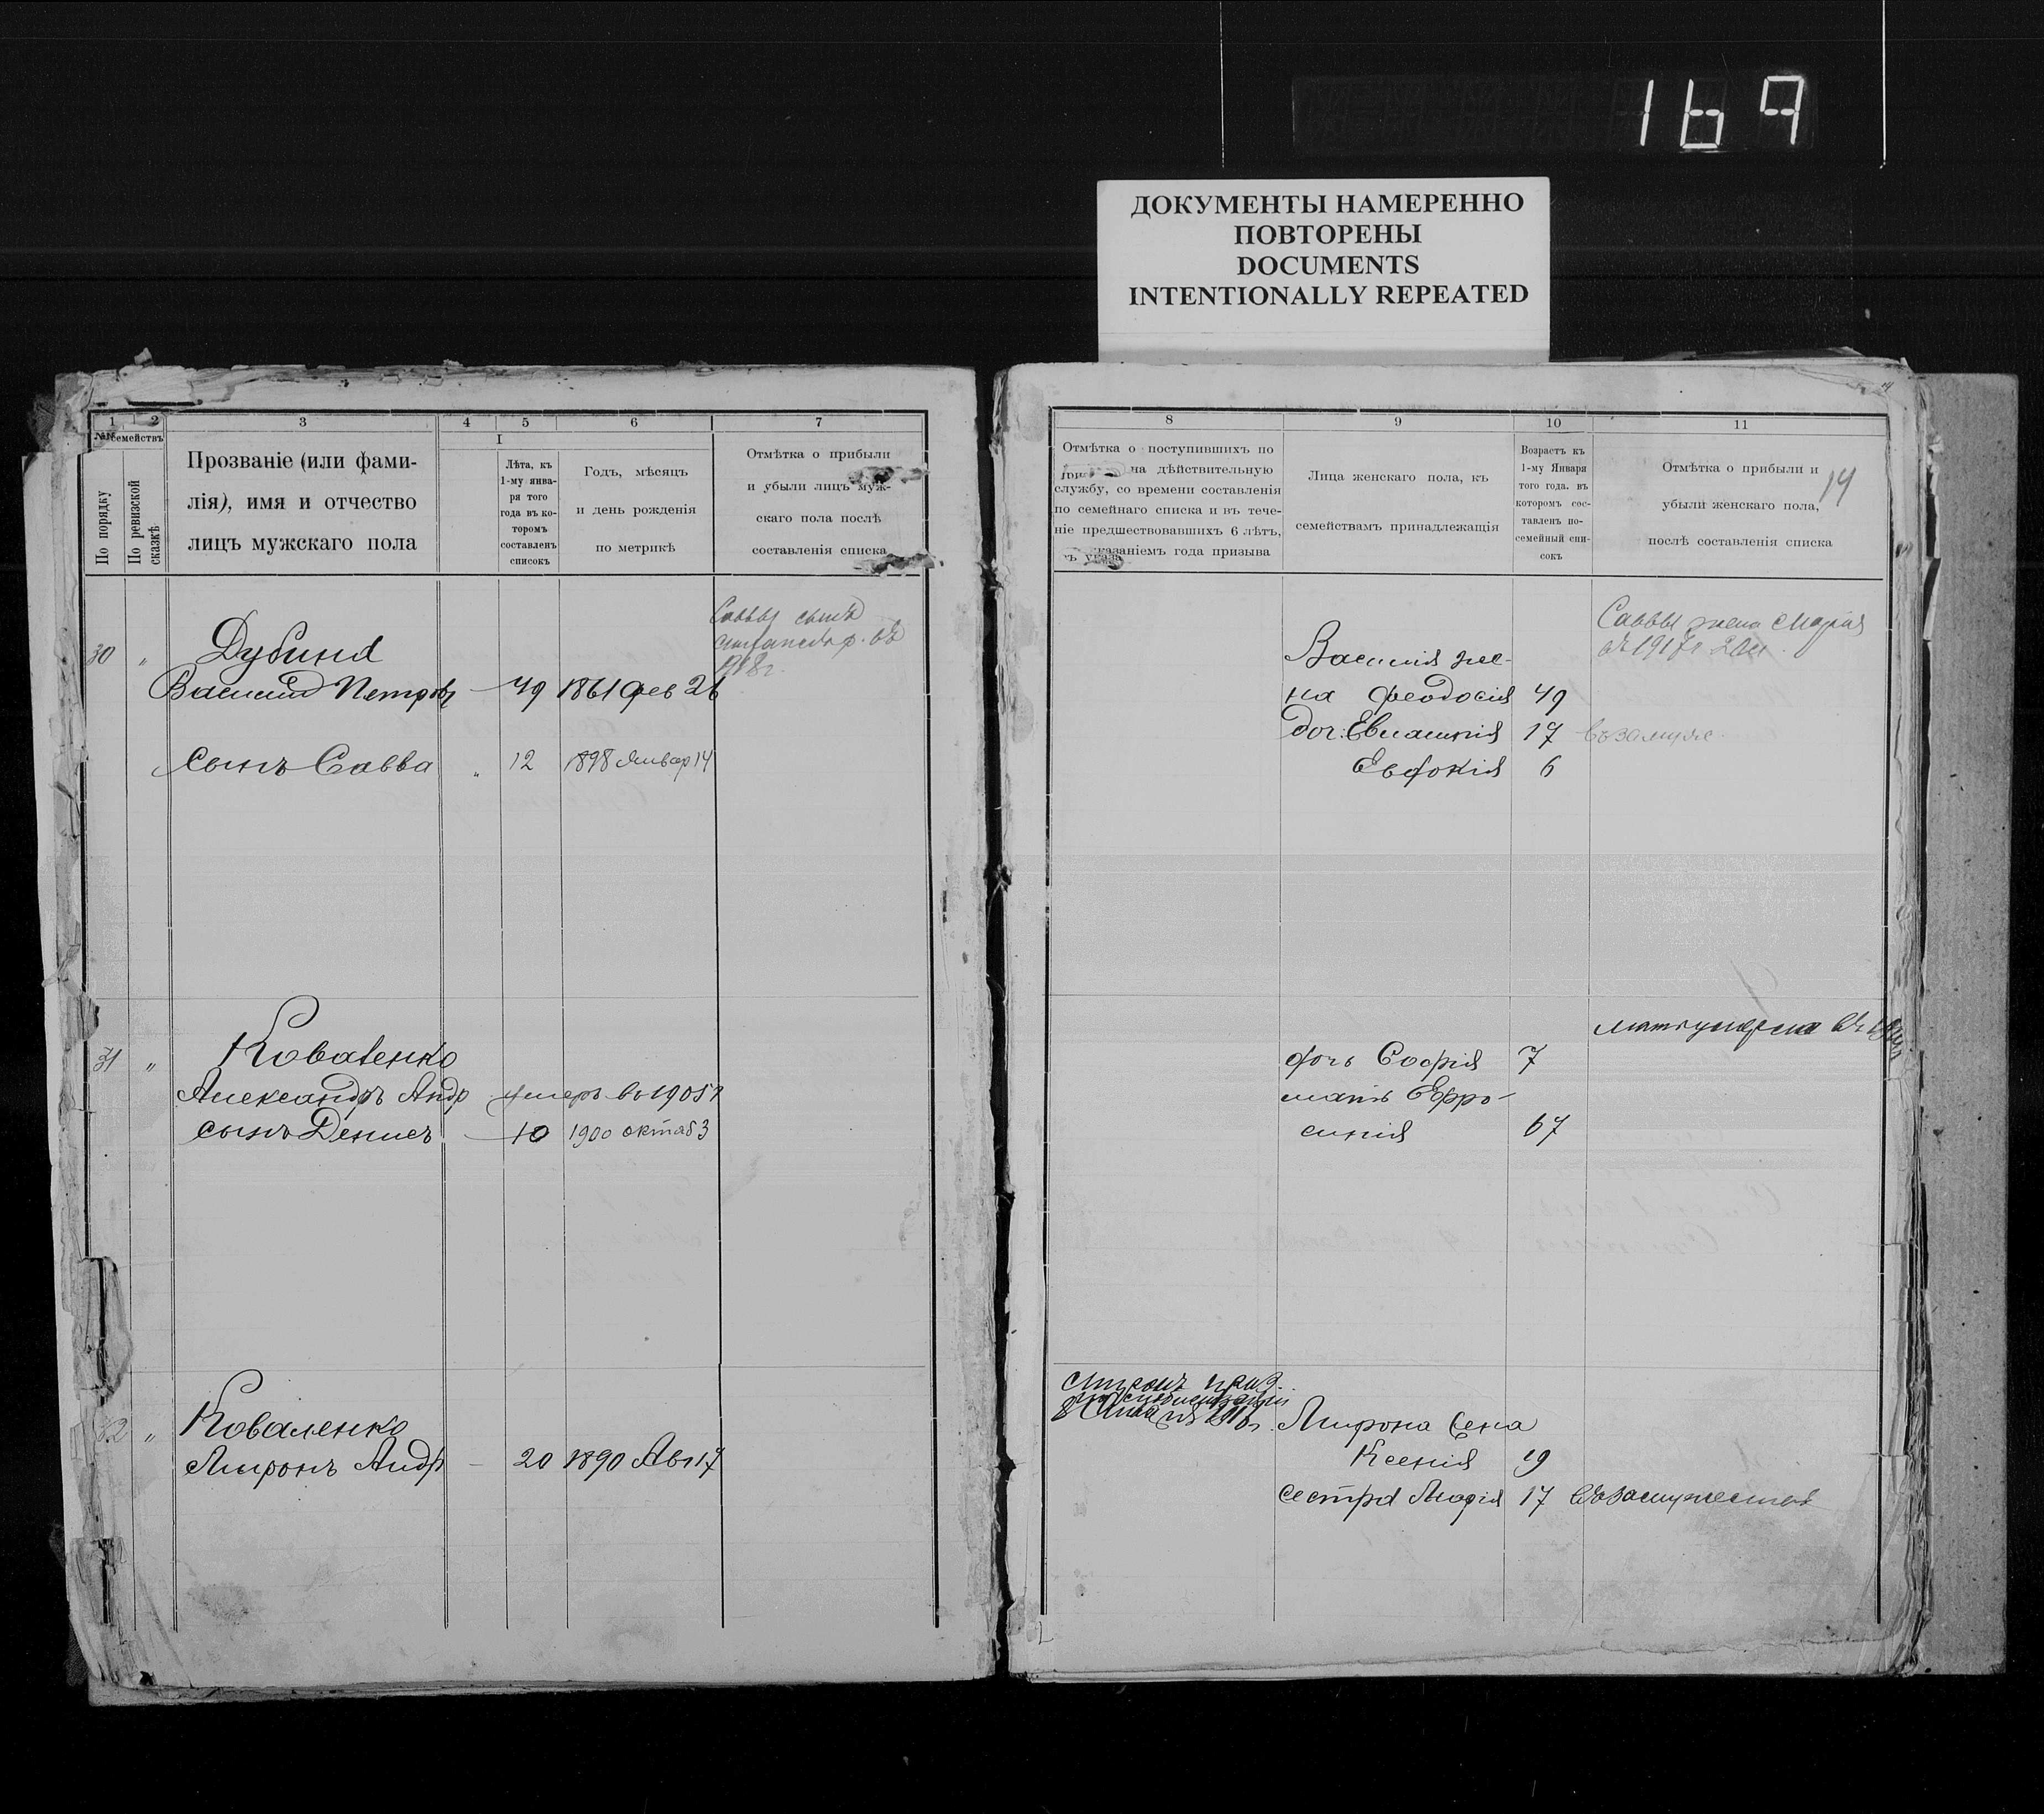 169
ДОКУМЕНТЫ НАМЕРЕННО
ПОВТОРЕНЫ
DOCUMENTS
INTENTIONALLY REPEATED
1 2 3 4 5 6 7
№№ семействъ
По порядку
По ревизской сказкѣ
Прозваніе (или фами-
лія), имя и отчество
лицъ мужскаго пола
I
Лѣта, къ
1-му янва-
ря того
года въ ко-
торомъ
составленъ
списокъ
Годъ, мѣсяцъ
и день рожденія
по метрикѣ
Отмѣтка о прибыли
и убыли лицъ муж-
скаго пола послѣ
составленія списка
Саввы сынъ
въ
1918г.
30 „ Дубина
Василий Петровъ 49 1861 фев 26
сынъ Савва „ 12 1898 Январ 14
31 „ Коваленко
Александръ Андр умеръ въ 1905г
сынъ Денисъ 10 1900 октяб 3
32 „ Коваленко
Миронъ Андр 20 1890 Авг 17
8 9 10 11
Отмѣтка о поступившихъ по
на дѣйствительную
службу, со времени составленія
по семейнаго списка и въ тече-
ніе предшествовавшихъ 6 лѣтъ,
съ указаніемъ года призыва
Лица женскаго пола, къ
семействамъ принадлежащія
Возрастъ къ
1-му Января
того года. въ
которомъ сос-
тавленъ по-
семейный спи-
сокъ
Отмѣтка о прибыли и
убыли женскаго пола,
послѣ составленія списка
14
Саввы жена Марія
съ 1917г
Василія же-
на Феодосія 49
доч: Евлампія 17 въ замуж
Евдокія 6
мать умерла въ
дочь Софія 7
мать Ефро-
синія 67
Миронъ
Мирона жена
Ксенія 19
сестра Марія 17 въ замужествѣ